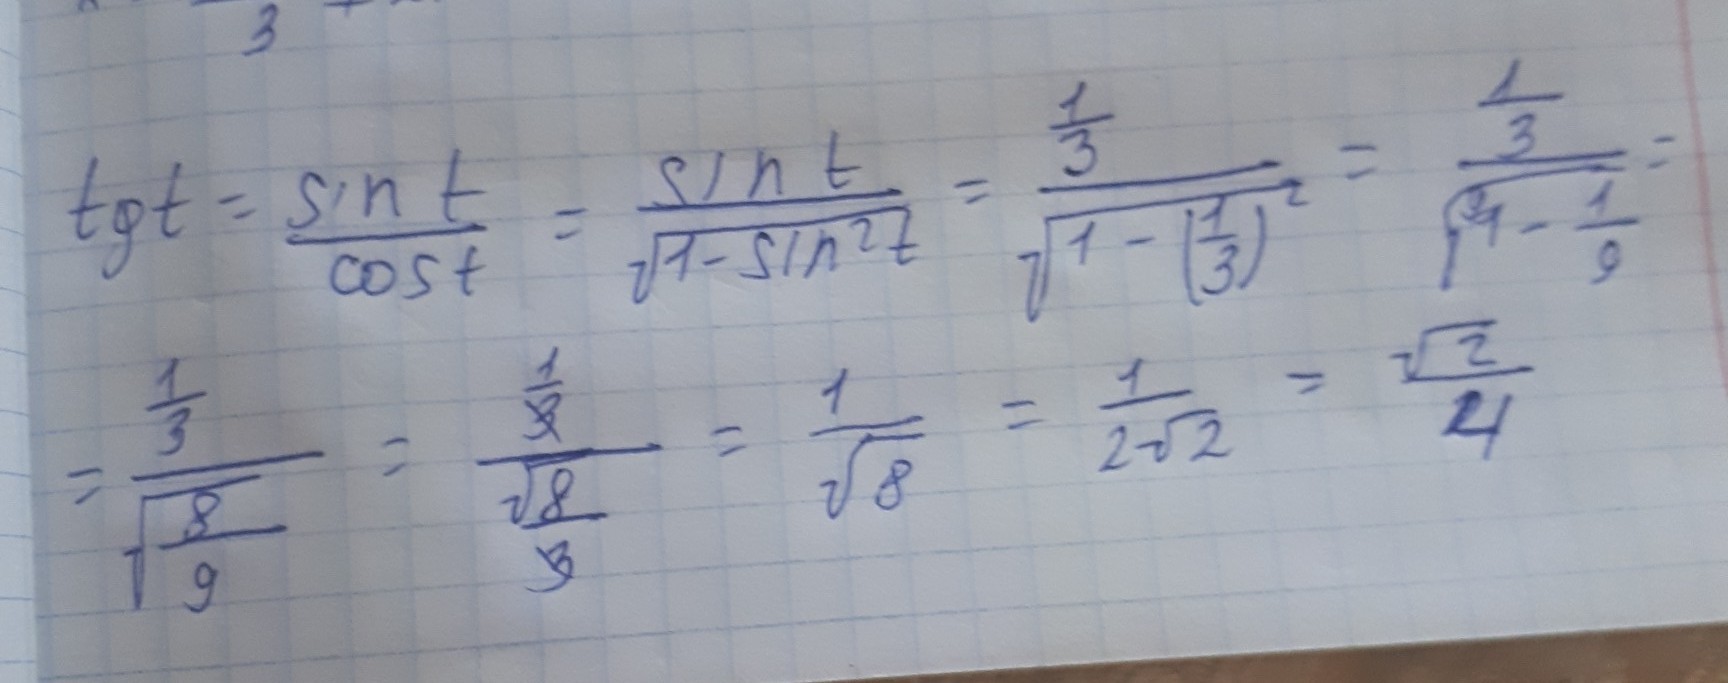 3
tgt = sin t / cost = sin t / √(1-sin²t) = (1/3) / √(1-(1/3)²) = (1/3) / √(1-1/9) =
= (1/3) / √(8/9) = (1/3) / (√8/3) = 1/√8 = 1/(2√2) = √2/4